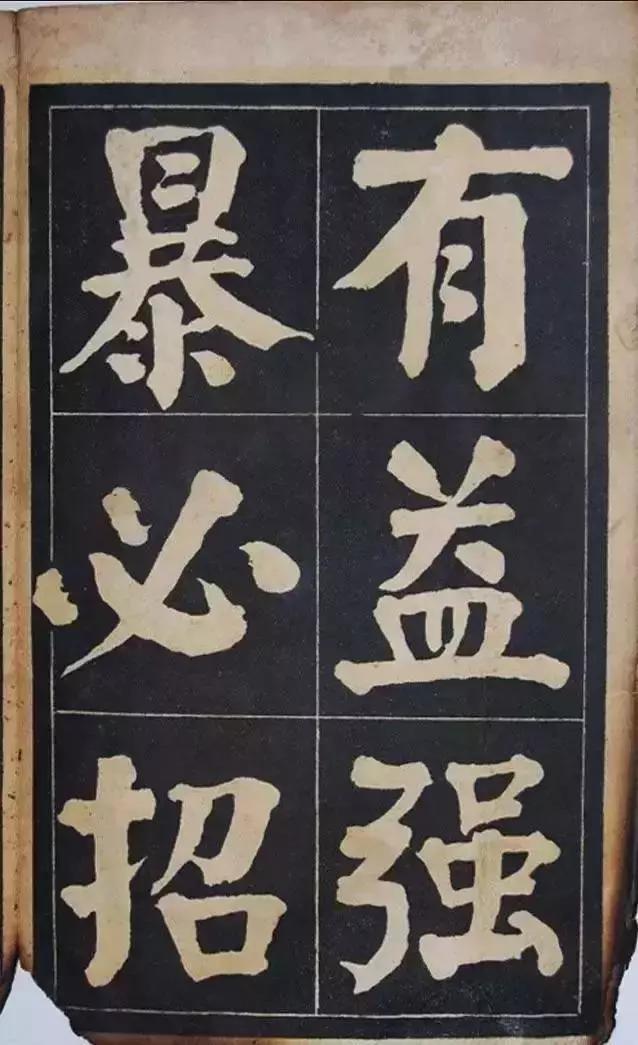 有益强
暴必招